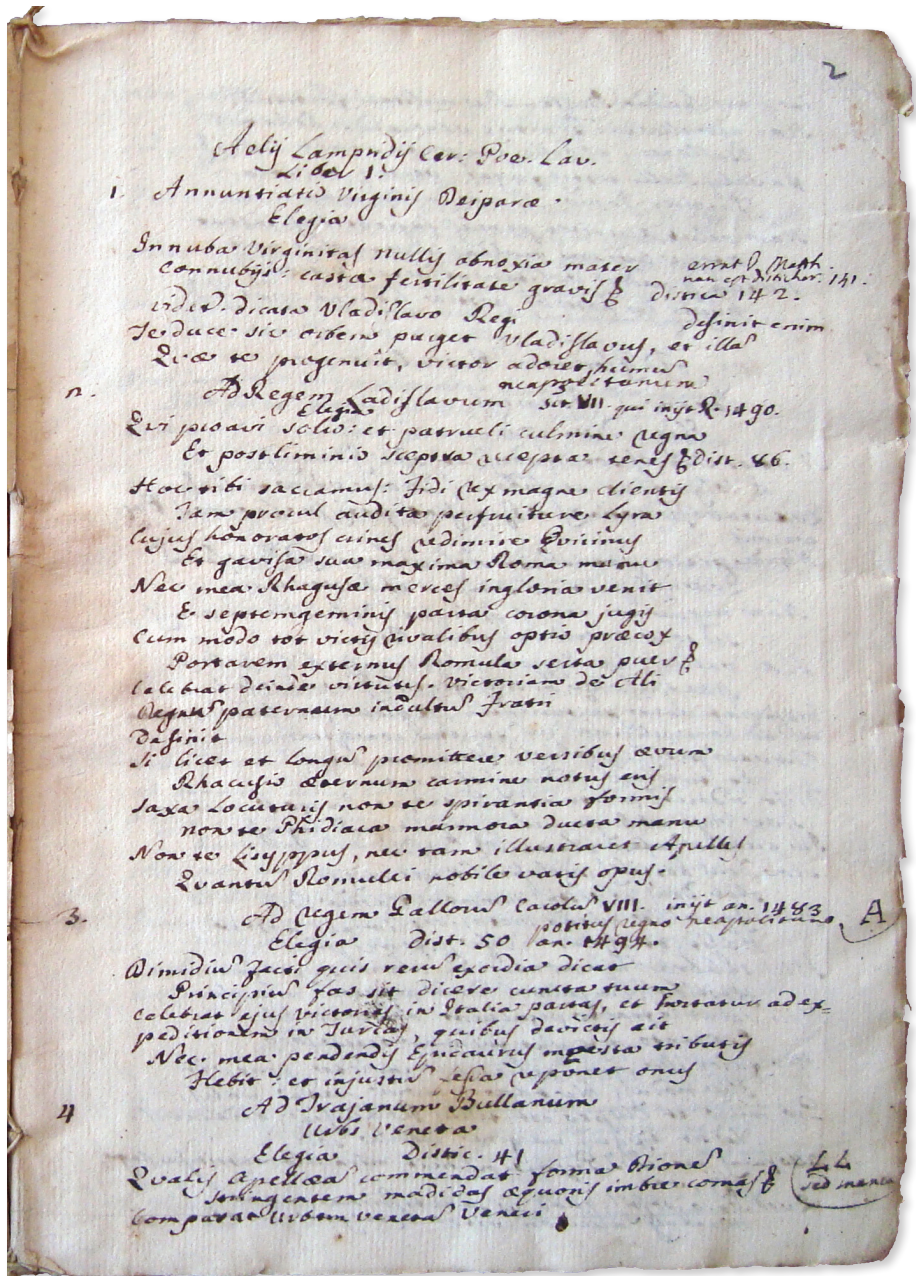 2
Aelij Lampridij Cer: Poe. Lau.
Liber 1.
1. Annuntiatio Virginis Deiparæ.
Elegia
Innuba Virginitas nullis obnoxia mater
Connubijs: casta fertilitate gravis &
errat D. Math.
non est distichor. 141.
distica 142.
videt. dicata Vladislavo Regi
definit enim
Te duce sic orbem purget Vladislavus, et illã
Quæ te progenuit, victor adoret humũ
2. Ad Regem Ladislavum
neapolitanum
Sit. VII. qui inijt R. 1490.
Elegia
Qui proavi solio: et patrueli culmine regna
Et postliminio sceptra recepta tenes & Dist. 86.
Hoc tibi sacramus: Fidi rex magne clientis
Iam procul audita perfruiture Lyra
Cujus honoratos crines redimire Quirinus
Et gavisa sua maxima Roma manu
Nec mea Rhagusæ merces ingloria venit
E septemgeminis parta corona jugis
Cum modo tot victis rivalibus optio præcox
Portarem externus Romula serta puer &
Celebrat deinde virtutes. Victoriam de Ali
Regnũ paternum indultũ Fratri
Definit
Si licet et longũ promittere versibus ævum
Rhacusio æternum carmine notus eris
Saxa Locuturis non te spirantia formis
non te Phidiaca marmora ducta manu
Non te Lisyppus, nec tam illustraret Apelles
Quantũ Romulei nobile vatis opus.
3. Ad regem Gallorũ Carolũ VIII. inijt an. 1483
potitus regno neapolitano
A
Elegia Dist. 50 an. 1494.
Dimidiũ facti quis rerũ exordia dicat
Principiũ fas sit dicere cuncta tuum
Celebrat ejus victorias in Italia partas, et hortatur ad ex=
peditionem in Turcas, quibus devictis ait
Nec mea pendendis Epidaurus mœsta tributis
Flebit: et injustũ fessa reponet onus
4 Ad Trajanum Bullanium
Urbs Veneta
Elegia Distic. 41
Qualis Apellæã commendat forma Dionẽ
Stringentem madidas æquoris imbre comas &
LL
sed manca
Comparat Urbem venetã Veneri